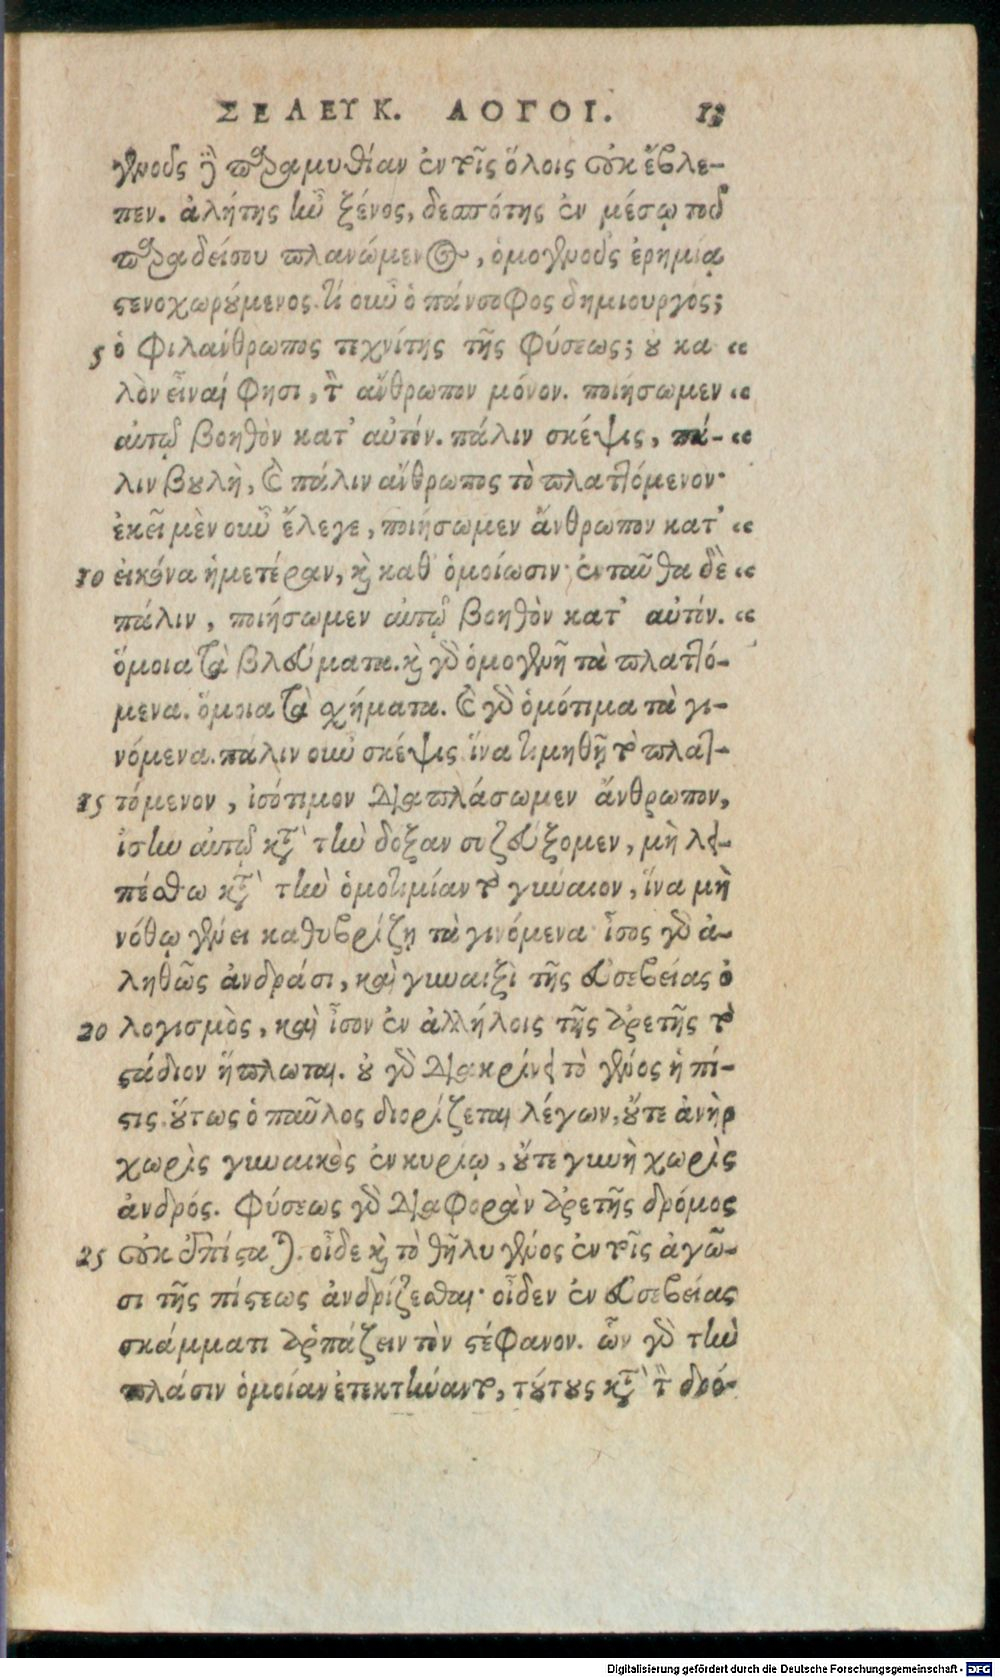 ΣΕΛΕΥΚ. ΛΟΓΟΙ. 13
γένους δὲ παραμυθίαν ἐν τοῖς ὅλοις οὐκ ἔβλε-
πεν. ἀλήτης ἦν ξένος, δεσπότης ἐν μέσῳ τοῦ
παραδείσου πλανώμενος, ὁμογενοῦς ἐρημίᾳ
στενοχωρούμενος. τί οὖν ὁ πάνσοφος δημιουργός;
5 ὁ φιλάνθρωπος τεχνίτης τῆς φύσεως; οὐ κα “
λὸν εἶναί φησι, τὸν ἄνθρωπον μόνον. ποιήσωμεν “
αὐτῷ βοηθὸν κατ’ αὐτόν. πάλιν σκέψις, πά- “
λιν βουλὴ, καὶ πάλιν ἄνθρωπος τὸ πλαττόμενον·
ἐκεῖ μὲν οὖν ἔλεγε, ποιήσωμεν ἄνθρωπον κατ’ “
10 εἰκόνα ἡμετέραν, καὶ καθ’ ὁμοίωσιν· ἐνταῦθα δὲ “
πάλιν, ποιήσωμεν αὐτῷ βοηθὸν κατ’ αὐτόν. “
ὅμοια τὰ βλεύματα. καὶ γὰρ ὁμογενῆ τὰ πλαττό-
μενα. ὅμοια τὰ σχήματα. καὶ γὰρ ὁμότιμα τὰ γι-
νόμενα. πάλιν οὖν σκέψις ἵνα τιμηθῇ τὸ πλατ-
15 τόμενον, ἰσότιμον διαπλάσωμεν ἄνθρωπον,
ἴσην αὐτῷ κατὰ τὴν δόξαν συζεύξομεν, μὴ λει-
πέσθω κατὰ τὴν ὁμοτιμίαν τὸ γύναιον, ἵνα μὴ
νόθῳ γένει καθυβρίζῃ τὰ γινόμενα· ἴσος γὰρ ἀ-
ληθῶς ἀνδράσι, καὶ γυναιξὶ τῆς εὐσεβείας ὁ
20 λογισμὸς, καὶ ἴσον ἐν ἀλλήλοις τῆς ἀρετῆς τὸ
στάδιον ἥπλωται. οὐ γὰρ διακρίνει τὸ γένος ἡ πί-
στις. οὕτως ὁ παῦλος διορίζεται λέγων, οὔτε ἀνὴρ
χωρὶς γυναικὸς ἐν κυρίῳ, οὔτε γυνὴ χωρὶς
ἀνδρός. φύσεως γὰρ διαφορὰν ἀρετῆς δρόμος
25 οὐκ ἐπίσταται. οἶδε καὶ τὸ θῆλυ γένος ἐν τοῖς ἀγῶ-
σι τῆς πίστεως ἀνδρίζεσθαι· οἶδεν ἐν εὐσεβείας
σκάμματι ἁρπάζειν τὸν στέφανον. ὧν γὰρ τὴν
πλάσιν ὁμοίαν ἐτεκτήναντο, τούτους κατὰ τὸν δρό-
Digitalisierung gefördert durch die Deutsche Forschungsgemeinschaft - DFG